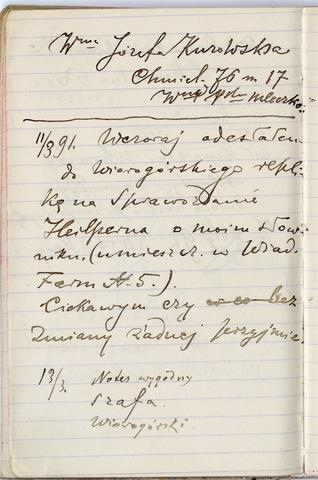 Wna Józefa Kurowska
Chmiel. 76 m 17
mleczko
11/3 91. Wczoraj odesłałem
do Wiorogórskiego repli-
kę na Sprawozdanie
Heilperna o moim słow-
niku. (umieszcz. w Wiad.
Farm № 5.).
Ciekawym czy w co bez
zmiany żadnej przyjmie.
13/3. Notes wygodny
Szafa.
Wiorogórski.